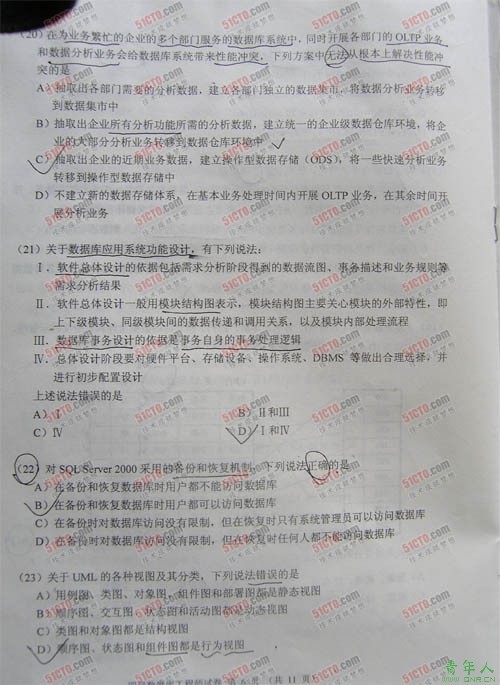 (20) 在为业务繁忙的企业的多个部门服务的数据库系统中，同时开展各部门的 OLTP 业务
和数据分析业务会给数据库系统带来性能冲突，下列方案中无法从根本上解决性能冲
突的是
A）抽取出各部门需要的分析数据，建立各部门独立的数据集市，将数据分析业务转移
到数据集市中
B）抽取出企业所有分析功能所需的分析数据，建立统一的企业级数据仓库环境，将企
业的大部分分析业务转移到数据仓库环境中
C）抽取出企业的近期业务数据，建立操作型数据存储（ODS），将一些快速分析业务
转移到操作型数据存储中
D）不建立新的数据存储体系，在基本业务处理时间内开展 OLTP 业务，在其余时间开
展分析业务
(21) 关于数据库应用系统功能设计，有下列说法：
Ⅰ．软件总体设计的依据包括需求分析阶段得到的数据流图、事务描述和业务规则等
需求分析结果
Ⅱ．软件总体设计一般用模块结构图表示，模块结构图主要关心模块的外部特性，即
上下级模块、同级模块间的数据传递和调用关系，以及模块内部处理流程
Ⅲ．数据库事务设计的依据是事务自身的事务处理逻辑
Ⅳ．总体设计阶段要对硬件平台、存储设备、操作系统、DBMS 等做出合理选择，并
进行初步配置设计
上述说法错误的是
A）Ⅱ B）Ⅱ和Ⅲ
C）Ⅳ D）Ⅰ和Ⅳ
(22) 对 SQL Server 2000 采用的备份和恢复机制，下列说法正确的是
A）在备份和恢复数据库时用户都不能访问数据库
B）在备份和恢复数据库时用户都可以访问数据库
C）在备份时对数据库访问没有限制，但在恢复时只有系统管理员可以访问数据库
D）在备份时对数据库访问没有限制，但在恢复时任何人都不能访问数据库
(23) 关于 UML 的各种视图及其分类，下列说法错误的是
A）用例图、类图、对象图、组件图和部署图都是静态视图
B）顺序图、交互图、状态图和活动图都是动态视图
C）类图和对象图都是结构视图
D）顺序图、状态图和组件图都是行为视图
四级数据库工程师试卷 第 5 页 （共 11 页）
51CTO.com
技术成就梦想
青年人
WWW.QNR.CN